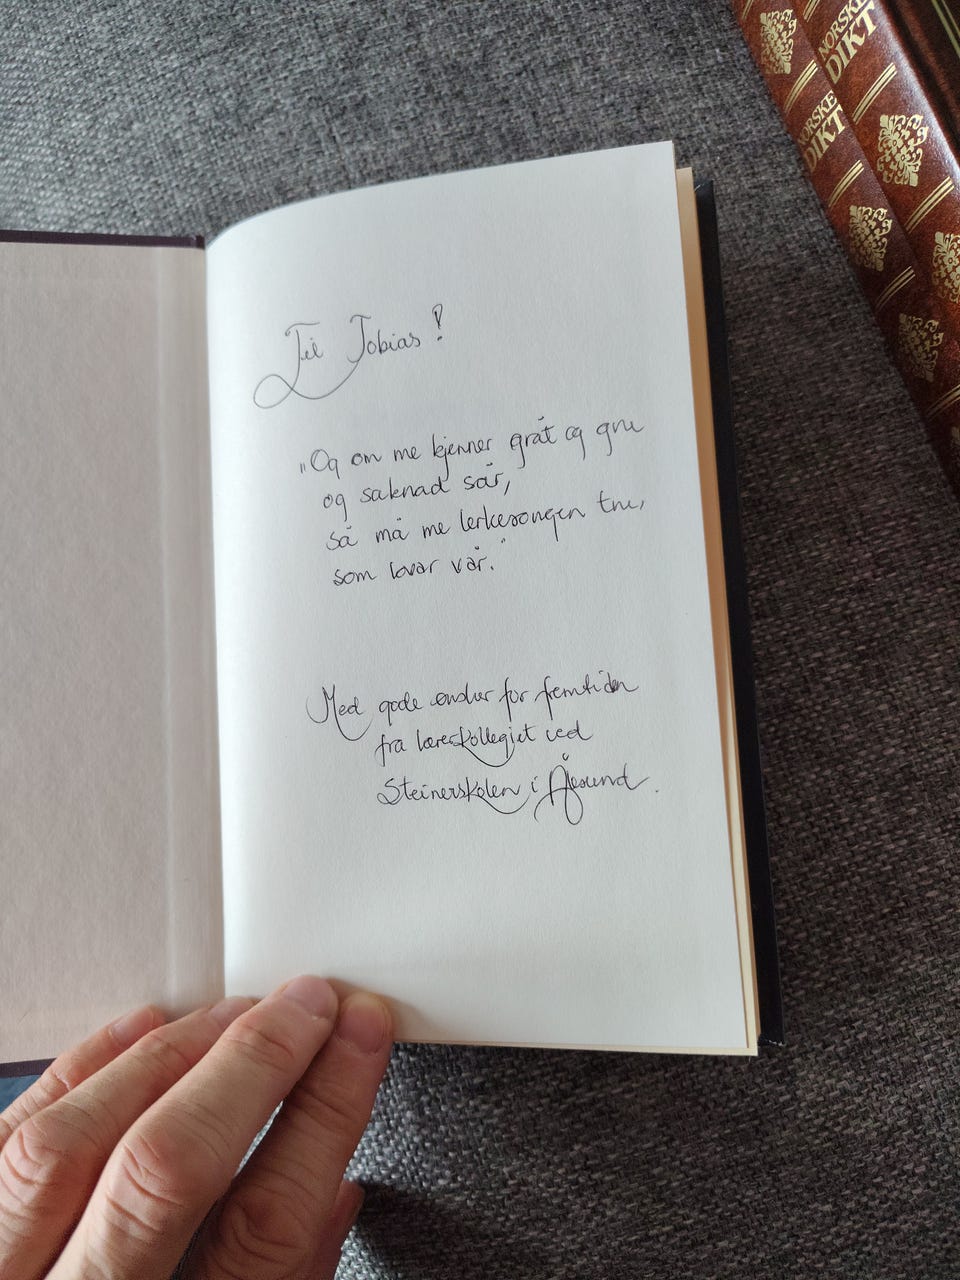 Til Tobias!
„Og om me kjenner gråt og gru
og saknad sår,
så må me lerkesongen tru,
som lovar vår."
Med gode ønsker for fremtiden
fra lærerkollegiet ved
Steinerskolen i Ålesund.
NORSKE
DIKT
NORSKE
DIKT